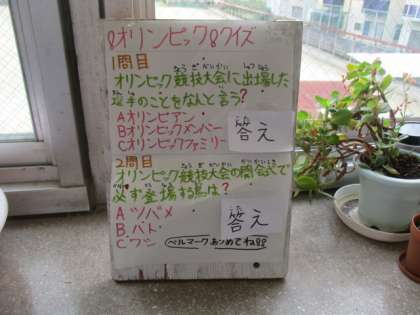 オリンピック クイズ
1問目
オリンピック競技大会に出場した
選手のことをなんと言う?
Aオリンピアン
Bオリンピックメンバー
Cオリンピックファミリー
答え
2問目
オリンピック競技大会の開会式で
必ず登場する鳥は?
A.ツバメ
B.ハト
C.ワシ
答え
ベルマークあつめてね